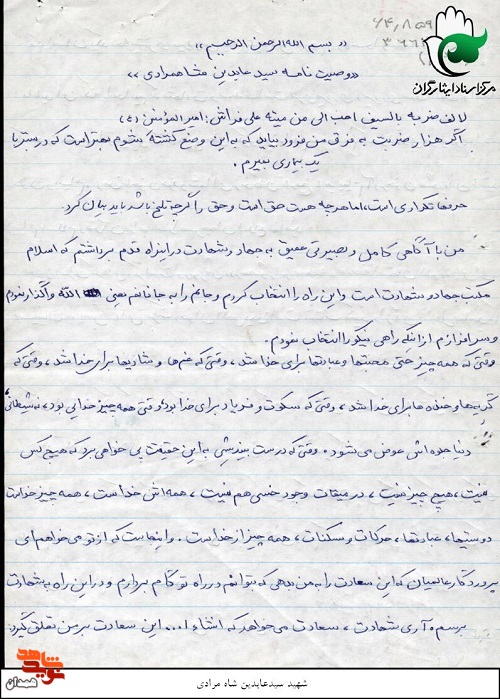 ۶۴،۸،۵۹
مرکز اسناد ایثارگران
«بسم الله الرحمن الرحیم»
«وصیت نامه سید عابدین شاهمرادی»
لالف ضربه بالسیف احب الی من میته علی فراش: امیرالمؤمنین (ع)
اگر هزار ضربت به فرق من فرود بیاید که به این وضع کشته شوم بهتر است که در بستر با
یک بیماری بمیرم.
حرفها تکراری است، اما هرچه هست حق است و حق را گرچه تلخ باشد باید بیان کرد.
من با آگاهی کامل و بصیرتی عمیق به جهاد و شهادت در این راه قدم برداشتم که اسلام
مکتب جهاد و شهادت است و این راه را انتخاب کردم و جانم را به جانانم یعنی الله واگذار نمودم
و سرافرازم از اینکه راهی نیکو را انتخاب نمودم.
وقتی که همه چیز حتی محبتها و عبادتها برای خدا شد، وقتی که غمها و شادیها برای خدا شد، وقتی که
گریه‌ها و خنده‌ها برای خدا شد، وقتی که سکوت و فریاد برای خدا بود، وقتی همه چیز خدایی بود، نه شیطانی،
دنیا جلوه‌اش عوض می‌شود. وقتی که درست بیندیشی به این حقیقت پی خواهی برد که هیچ کس
نیست، هیچ چیز نیست، در میقات وجود خسی هم نیست، همه‌اش خداست، همه چیز خداست
دوستیها، عبادتها، حرکات و سکنات، همه چیز از خداست. و اینجاست که از تو می‌خواهم ای
پروردگار عالمیان که این سعادت را به من بدهی که بتوانم در راه تو گام بردارم و در این راه به شهادت
برسم، آری شهادت، سعادت می‌خواهد که انشاءا... این سعادت بر من تعلق گیرد.
نوید شاهد
همدان
شهید سیدعابدین شاه مرادی